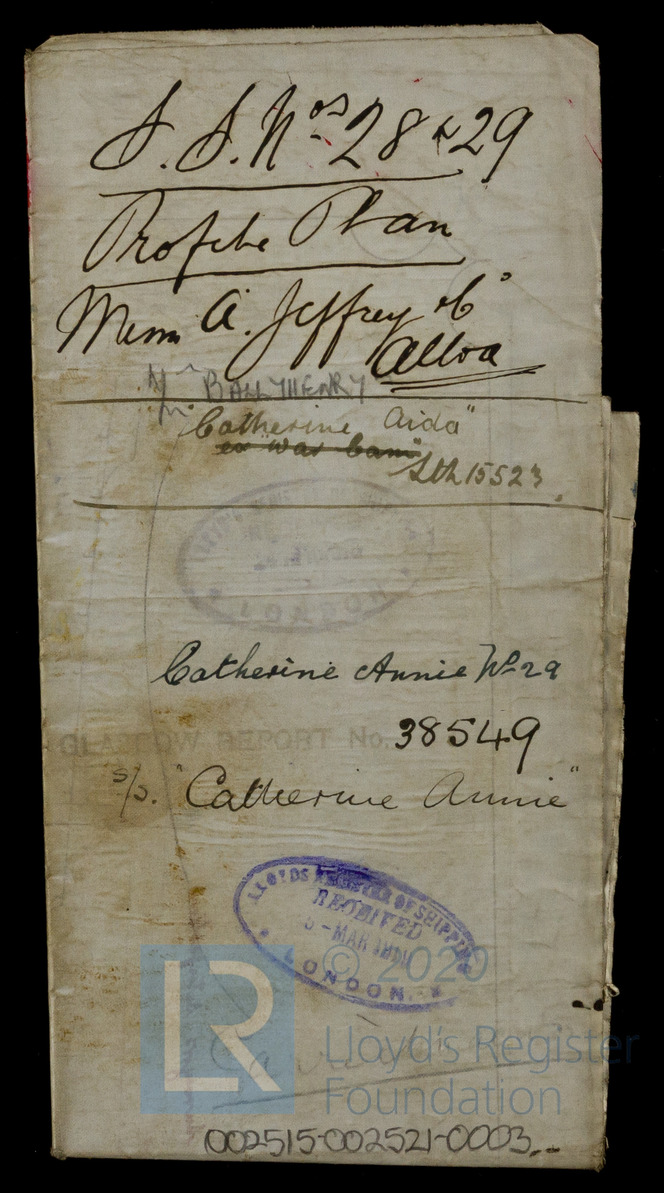 S.S. Nos 28 & 29
Profile Plan
Messrs A. Jeffrey & Co
Alloa
BALLYHENRY
"Catherine Aida"
ex "War Cam"
Lth 15523
Catherine Annie No 29
GLASGOW REPORT No. 38549
s/s. "Catherine Annie"
LLOYDS REGISTER OF SHIPPING
RECEIVED
5 - MAR
LONDON
© 2020
LR
Lloyd's Register
Foundation
002515-002521-0003